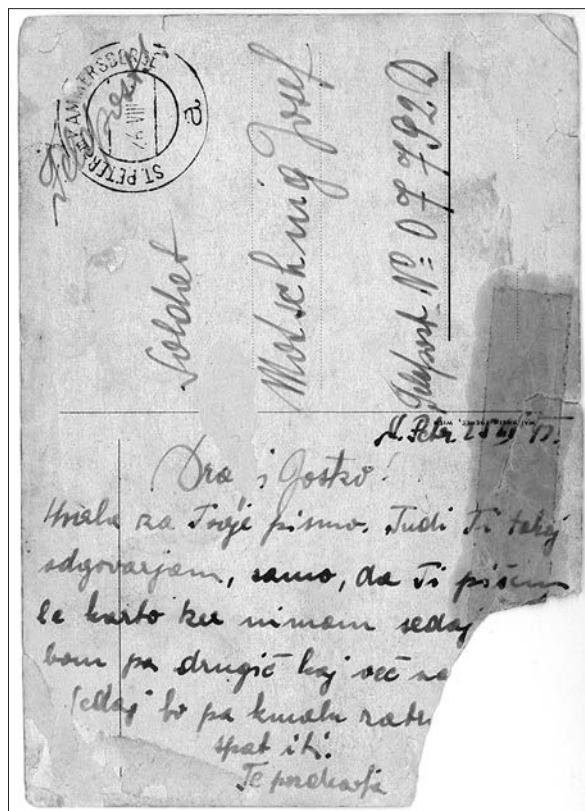 Feldpost
ST. PETER
a
Soldat
Motschnig Josef
Feldpost Nº = 07792D
St. Peter
Dragi Joško!
Hvala za Tvoje pismo. Tudi Ti takoj
odgovarjam, samo, da Ti pišem
le karto ker nimam sedaj
bom pa drugič kaj več na
Sedaj bo pa kmalu
spat iti.
Te pozdravlja